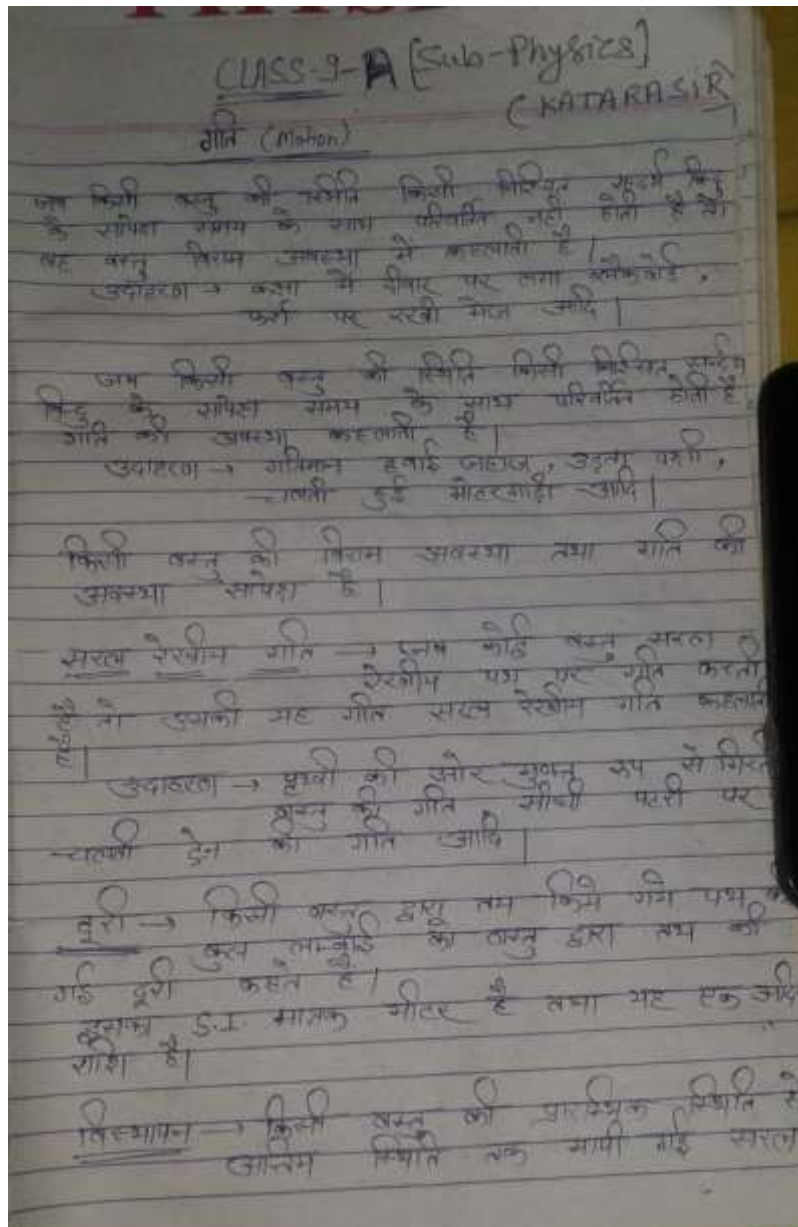 CLASS-9-A [Sub-Physics]
(KATARA SIR)
गति (Motion)
जब किसी वस्तु की स्थिति किसी निश्चित सन्दर्भ बिन्दु
के सापेक्ष समय के साथ परिवर्तित नहीं होती है तो
वह वस्तु विराम अवस्था में कहलाती है |
उदाहरण → कक्षा में दीवार पर लगा ब्लैकबोर्ड,
फर्श पर रखी मेज आदि |
जब किसी वस्तु की स्थिति किसी निश्चित सन्दर्भ
बिन्दु के सापेक्ष समय के साथ परिवर्तित होती है,
गति की अवस्था कहलाती है |
उदाहरण → गतिमान हवाई जहाज, उड़ता पक्षी,
चलती हुई मोटरगाड़ी आदि |
किसी वस्तु की विराम अवस्था तथा गति की
अवस्था सापेक्ष है |
सरल रेखीय गति → जब कोई वस्तु सरल
रेखीय पथ पर गति करती
तो उसकी यह गति सरल रेखीय गति कहलाती
है |
उदाहरण → पृथ्वी की ओर मुक्त रूप से गिरती
वस्तु की गति, सीधी पटरी पर
चलती ट्रेन की गति आदि |
दूरी → किसी वस्तु द्वारा तय किये गये पथ की
कुल लम्बाई को वस्तु द्वारा तय की
गई दूरी कहते है |
इसका S.I. मात्रक मीटर है तथा यह एक अदि
राशि है |
विस्थापन → किसी वस्तु की प्रारम्भिक स्थिति से
अन्तिम स्थिति तक मापी गई सरल